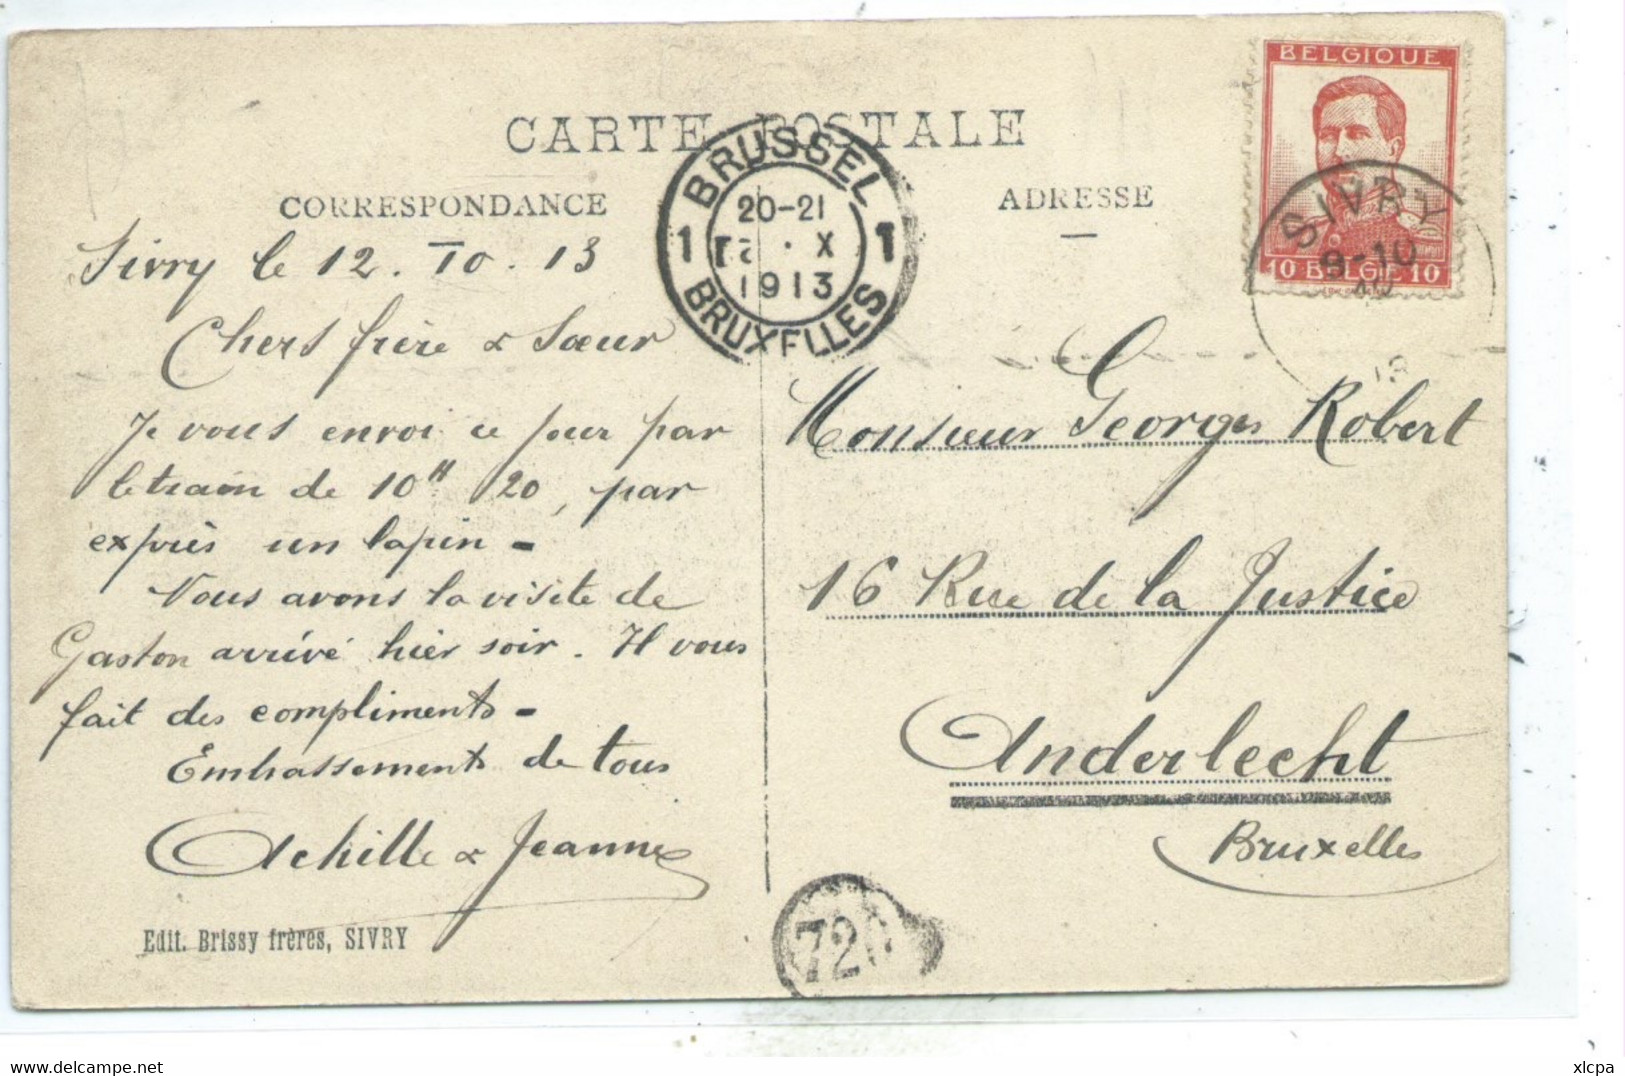 CARTE POSTALE
CORRESPONDANCE
ADRESSE
BRUSSEL
20-21
1 X 1
1913
BRUXELLES
BELGIQUE
SIVRY
9-10
10 BELGIE 10
13
Sivry le 12. 10. 13
Chers frère & Sœur
Je vous envoi ce jour par
le train de 10H 20, par
exprès un lapin -
Nous avons la visite de
Gaston arrivé hier soir. Il vous
fait des compliments -
Embrassements de tous
Achille & Jeanne
Edit. Brissy frères, SIVRY
Monsieur Georges Robert
16 Rue de la Justice
Anderlecht
Bruxelles
720
xlcpa
delcampe.net